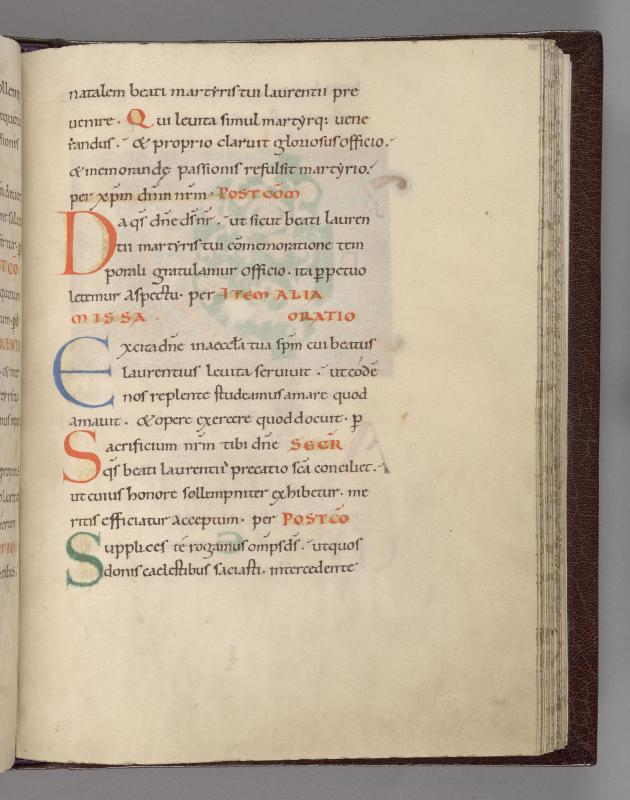 natalem beati martyris tui laurentii pre
uenire. Qui leuita simul martyrq; uene
randus. & proprio claruit gloriosus officio.
& memorandę passionis refulsit martyrio.
per xp̄m dn̄m nr̄m. POST COM̄
Da qs̄ dn̄e ds̄ nr̄. ut sicut beati lauren
tii martyris tui cōmemoratione tem
porali gratulamur officio. ita ꝑpetuo
letemur aspectu. per ITEM ALIA
MISSA. ORATIO
Excita dn̄e in aeccl̄a tua sp̄m cui beatus
laurentius leuita seruiuit. ut eodē
nos replente studeamus amare quod
amauit. & opere exercere quod docuit. ꝑ
Sacrificium nr̄m tibi dn̄e SECR̄
qs̄ beati laurentii precatio sc̄a conciliet.
ut cuius honore sollempniter exhibetur. me
ritis efficiatur acceptum. per POST CŌ
Supplices te rogamus omp̄s ds̄. ut quos
donis caelestibus saciasti. intercedente